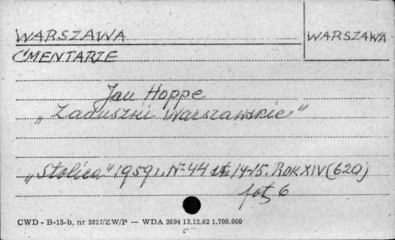 WARSZAWA WARSZAWA
CMENTARZE
Jan Hoppe
„Zaduszki Warszawskie"
„Stolica" 1959 r. Nr 44 st. 14-15. ROK XIV (620)
fot. 6
CWD - B-15-b, nr 2827/ZW/P — WDA 2694 13.12.62 1.700.000